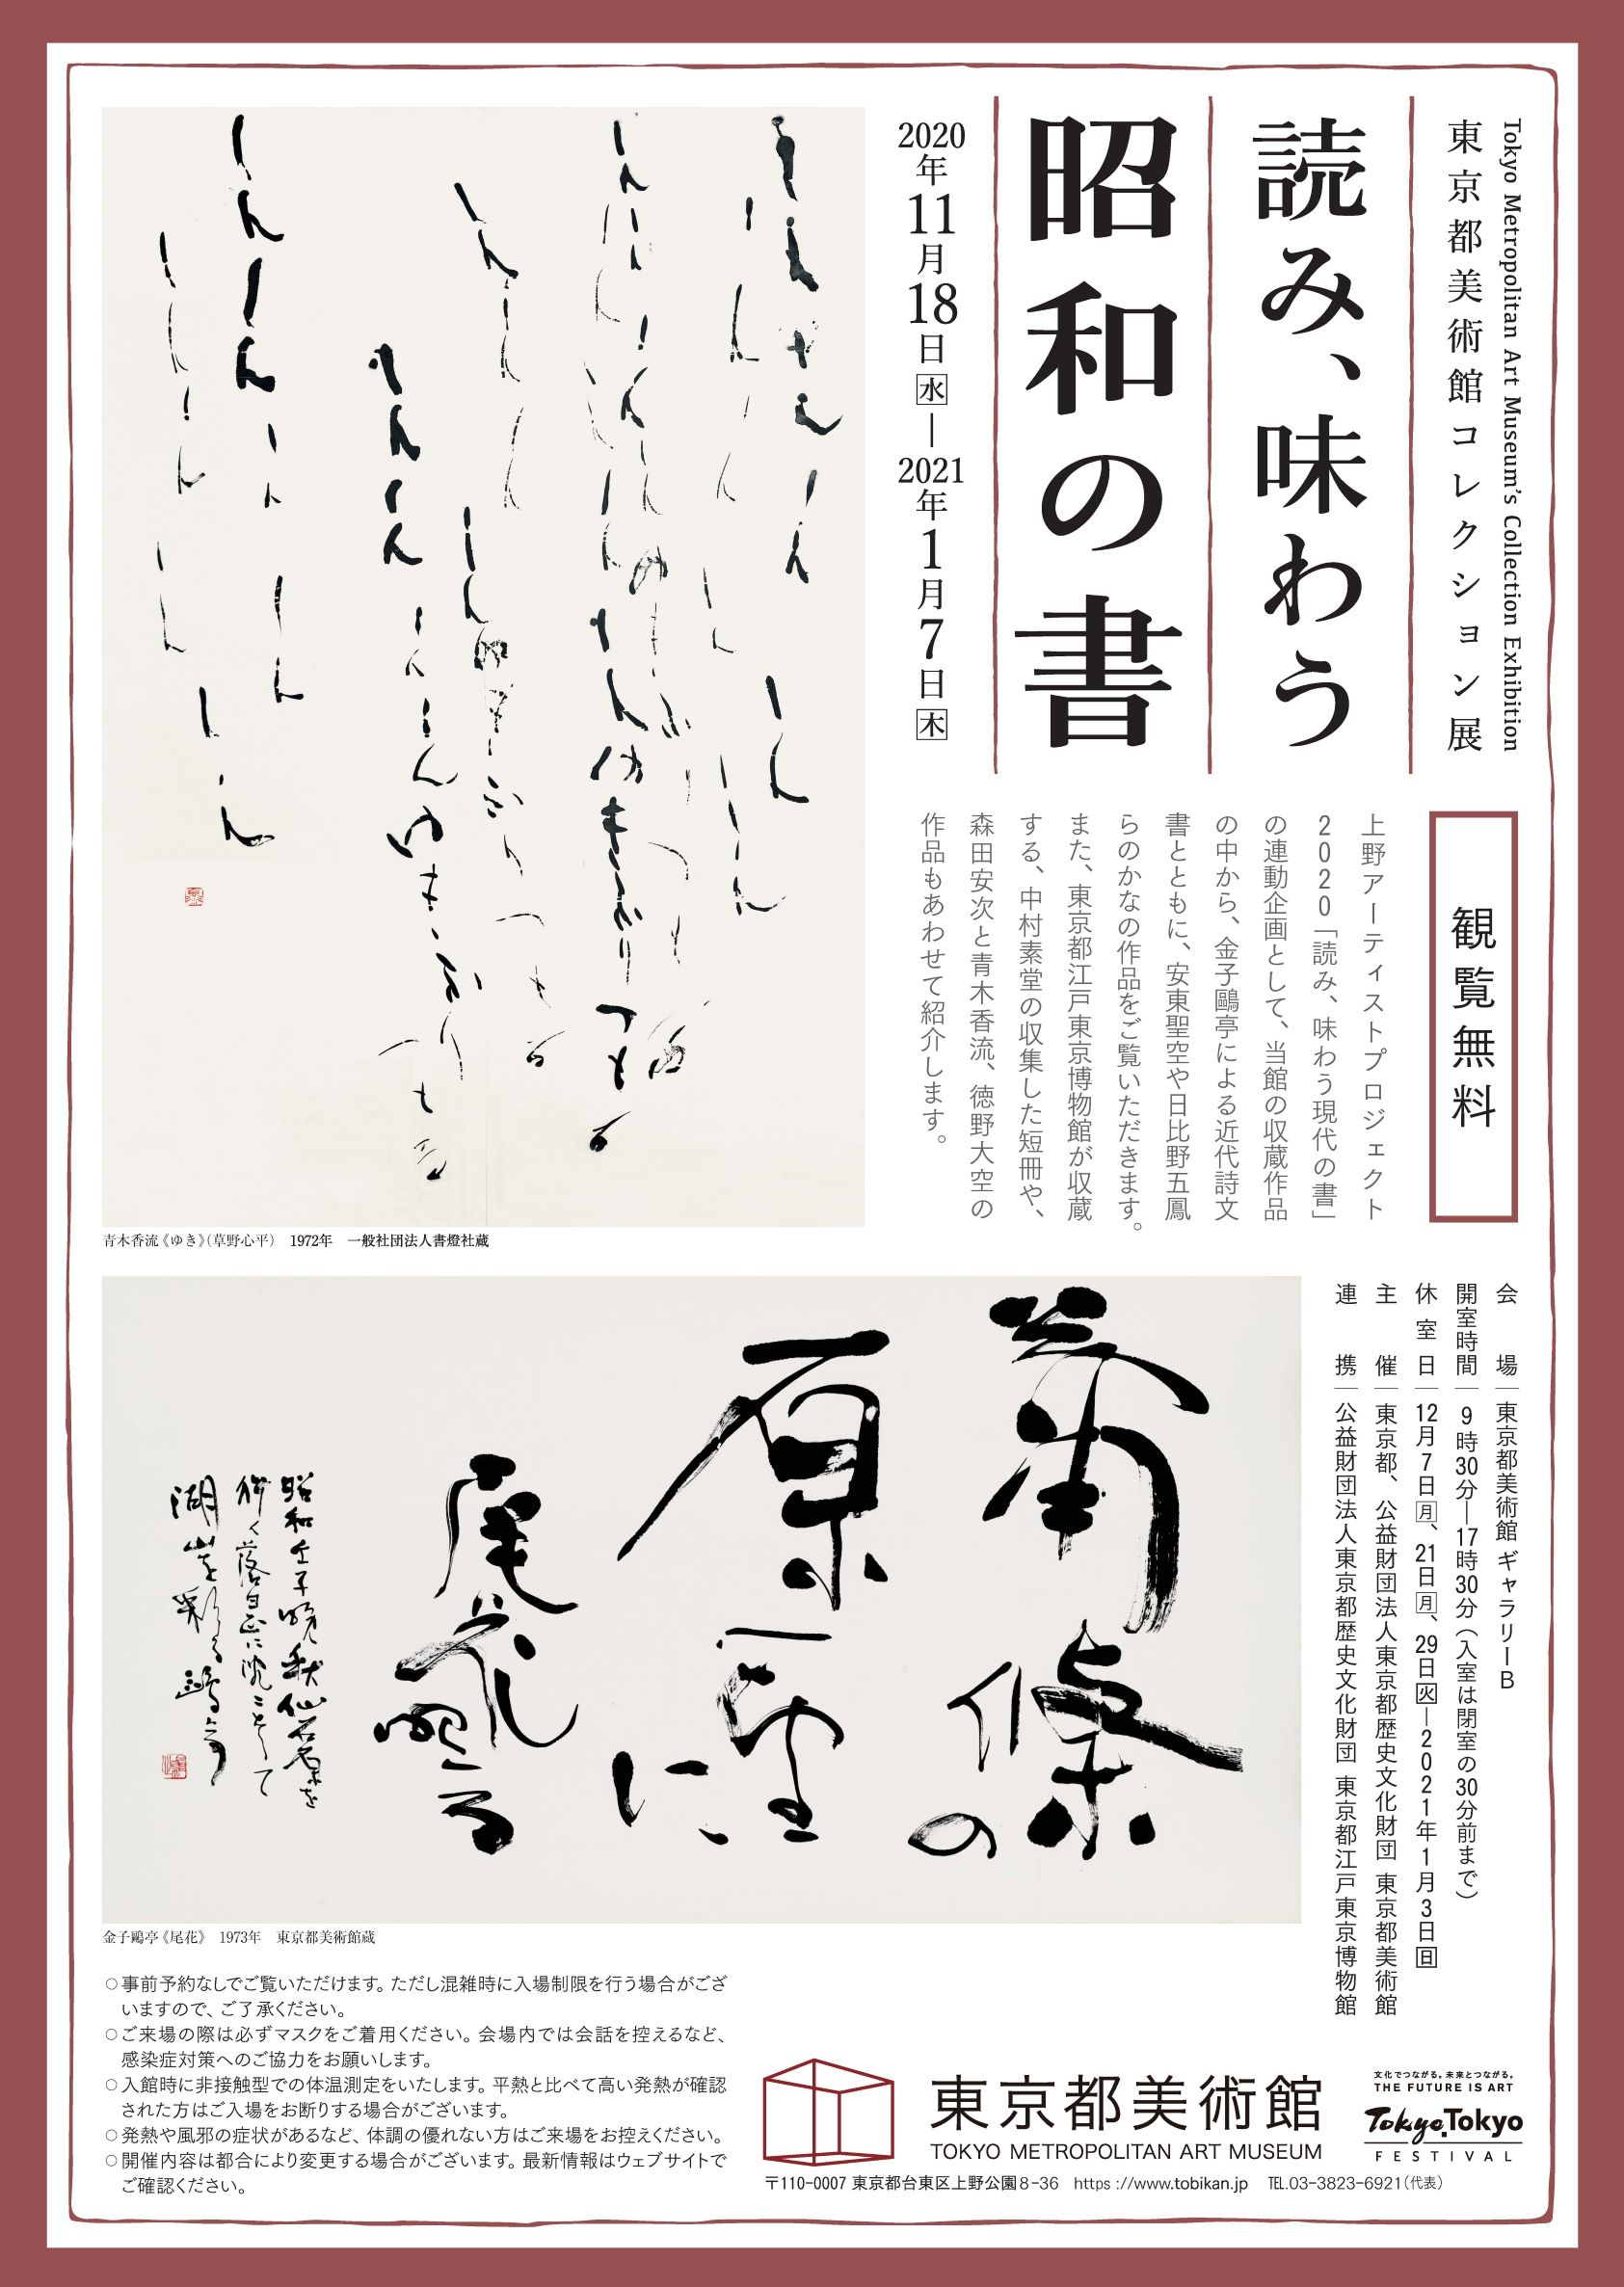 Tokyo Metropolitan Art Museum's Collection Exhibition
東京都美術館コレクション展
読み、味わう
昭和の書
2020年11月18日水―2021年1月7日木
観覧無料
上野アーティストプロジェクト
2020「読み、味わう現代の書」
の連動企画として、当館の収蔵作品
の中から、金子鷗亭による近代詩文
書とともに、安東聖空や日比野五鳳
らのかなの作品をご覧いただきます。
また、東京都江戸東京博物館が収蔵
する、中村素堂の収集した短冊や、
森田安次と青木香流、徳野大空の
作品もあわせて紹介します。
青木香流《ゆき》(草野心平) 1972年 一般社団法人書燈社蔵
会場|東京都美術館 ギャラリーB
開室時間|9時30分―17時30分(入室は閉室の30分前まで)
休室日|12月7日月、21日月、29日火―2021年1月3日日
主催|東京都、公益財団法人東京都歴史文化財団 東京都美術館
連携|公益財団法人東京都歴史文化財団 東京都江戸東京博物館
蕭條の
原一面に
尾花照る
金子鷗亭《尾花》 1973年 東京都美術館蔵
○事前予約なしでご覧いただけます。ただし混雑時に入場制限を行う場合がござ
いますので、ご了承ください。
○ご来場の際は必ずマスクをご着用ください。会場内では会話を控えるなど、
感染症対策へのご協力をお願いします。
○入館時に非接触型での体温測定をいたします。平熱と比べて高い発熱が確認
された方はご入場をお断りする場合がございます。
○発熱や風邪の症状があるなど、体調の優れない方はご来場をお控えください。
○開催内容は都合により変更する場合がございます。最新情報はウェブサイトで
ご確認ください。
東京都美術館
TOKYO METROPOLITAN ART MUSEUM
〒110-0007 東京都台東区上野公園8-36 https://www.tobikan.jp TEL.03-3823-6921(代表)
文化でつながる。未来とつながる。
THE FUTURE IS ART
Tokyo Tokyo
FESTIVAL